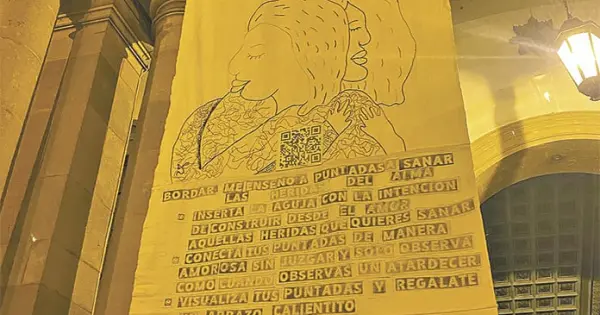 BORDAR ME ENSEÑO A PUNTADAS A SANAR
LAS HERIDAS DEL ALMA
INSERTA LA AGUJA CON LA INTENCION
DE CONSTRUIR DESDE EL AMOR
AQUELLAS HERIDAS QUE QUIERES SANAR
CONECTA TUS PUNTADAS DE MANERA
AMOROSA SIN JUZGAR Y SOLO OBSERVA
COMO CUANDO OBSERVAS UN ATARDECER
VISUALIZA TUS PUNTADAS Y REGALATE
UN ABRAZO CALIENTITO